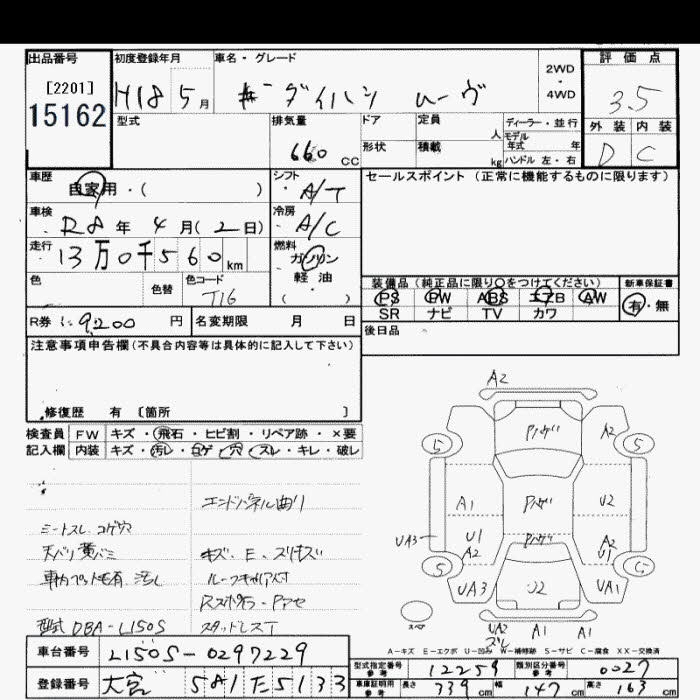 出品番号
[2201]
15162
初度登録年月
H18 5月
車名・グレード
ダイハツ ムーヴ
2WD
・
4WD
評価点
3.5
型式
排気量
660 CC
ドア
形状
定員 人
積載 kg
ディーラー・並行
モデル
年式 年
ハンドル 左・右
外装 内装
D C
車歴
自家用・( )
シフト
A/T
セールスポイント (正常に機能するものに限ります)
車検
R8年 4月(2日)
冷房
A/C
走行
13万0千560km
燃料
ガソリン
軽・油
( )
色
色替
色コード
T16
装備品 (純正品に限り○をつけてください)
PS PW ABS エアB AW
SR ナビ TV カワ
新車保証書
有・無
R券 9,200円
名変期限 月 日
後日品
注意事項申告欄(不具合内容等は具体的に記入して下さい)
修復歴 有 〔箇所 〕
検査員 FW キズ・飛石・ヒビ割・リペア跡・×要
記入欄 内装 キズ・汚レ・コゲ・穴・スレ・キレ・破レ
エンドパネル曲り
シートスレ コゲ穴
天バリ黄バミ
キズ、E、スリキズ
車内ペット毛有 汚レ
ルーフキャリア付
型式 DBA-L150S
スタッドレスT
車台番号 L150S-0297229
登録番号 大宮 581 E 5133
A2
A2
A1
U2
U1
A2
UA3
A2
U1
UA3
U2
UA1
UA2
A1
A1
スペア
A-キズ E-エクボ U-凹み W-補修跡 S-サビ C-腐食 XX-交換済
型式指定番号
参考
12259
類別区分番号
参考
0027
車庫証明用
参考
長さ 339 cm
幅 147 cm
高さ 163 cm